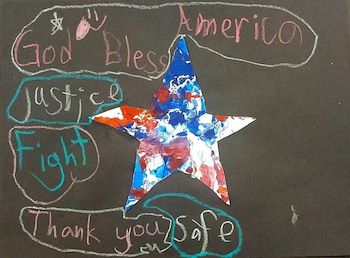 God Bless America
Justice
Fight
Thank you Safe